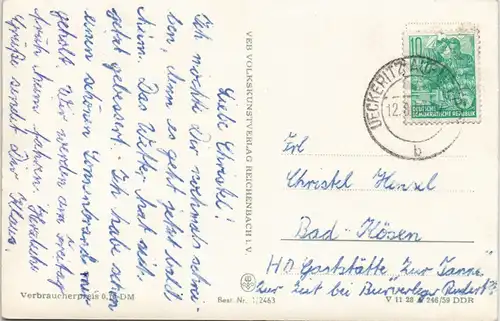 Liebe Christel!
Ich möchte Dir nochmals schrei-
ben, denn es geht jetzt bald
heim. Das Wetter hat sich
jetzt gebessert. Ich habe schon
einen schönen Sonnenbrand mir
geholt. Wir werden am Freitag
früh heim fahren. Herzliche
Grüße sendet Dir Klaus.
Verbraucherpreis 0, DM
VEB VOLKSKUNSTVERLAG REICHENBACH i. V.
Best. Nr. 1/2463
UECKERITZ AUF
12.
b
10
DEUTSCHE
DEMOKRATISCHE REPUBLIK
Frl
Christel Hensel
Bad-Kösen
HO Gaststätte "Zur Tanne"
zur Zeit bei
V 11 28 A 246/59 DDR